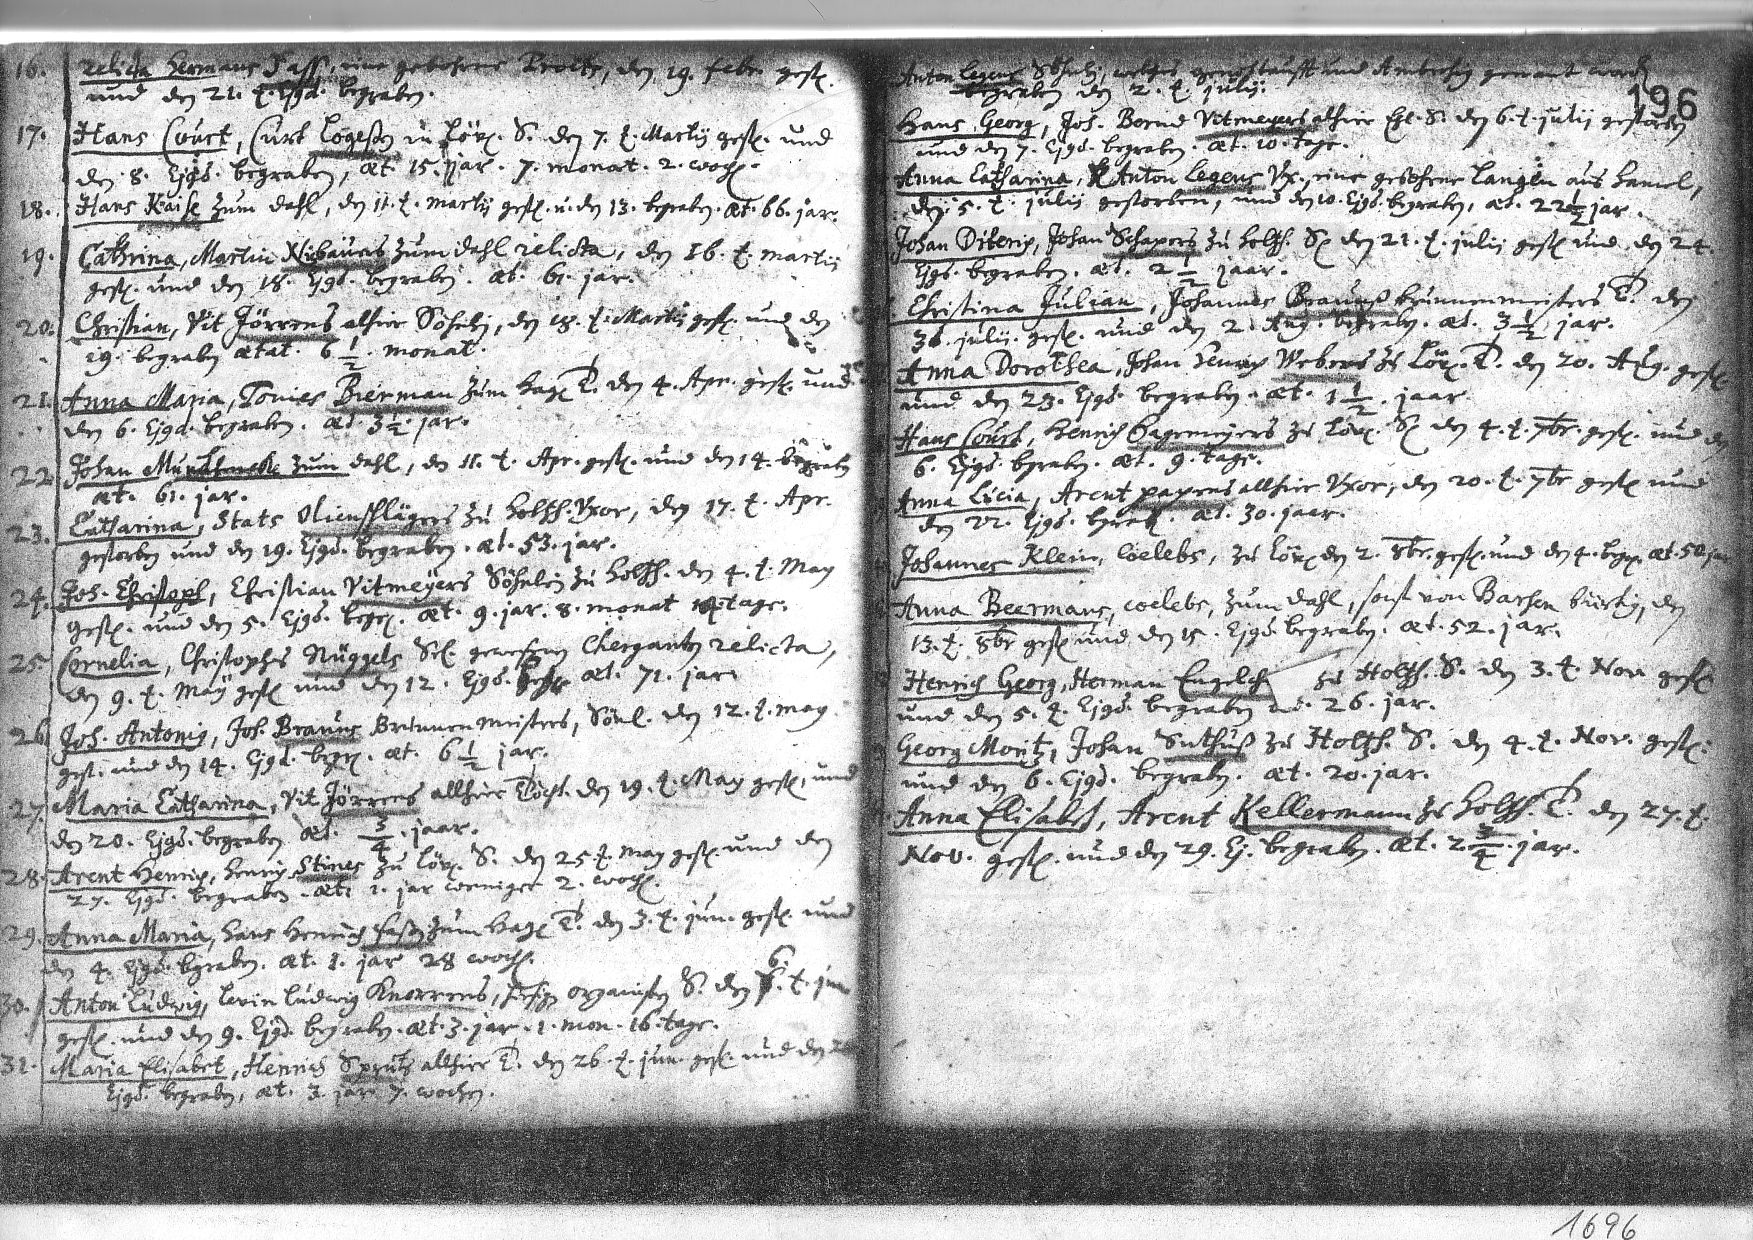 16. relicta Hermans Fass, eine gebohrene Brolts, den 19. febr. gest.
und den 21. t. Ejsd. begraben.
17. Hans Court, Curt Logessen in S. den 7. t. Martij gest. und
den 8. Ejsd. begraben, æt. 15. jar. 7. monat. 2. woch.
18. Hans Kaise zum dahl, den 11. t. martij gest. u. den 13. begraben. æt. 66. jar.
19. Cathrina, Martin Nibauers zum dahl relicta, den 16. t. martij
gest. und den 18. Ejsd. begraben. æt. 61. jar.
20. Christian, Vit Jörrens alhier Söhnlj, den 18. t. Martij gest. und den
19. begraben ætat. 6 1/2. monat.
21. Anna Maria, Tonies Bierman zum Hag. T. den 4. Apr. gest. und
den 6. Ejsd. begraben. æt. 3 1/2. jar.
22. Johan zum dahl, den 11. t. Apr. gest. und den 14. begraben
æt. 61. jar.
23. Catharina, Stats Olienschlägers zu Holtzh. Uxor, den 17. t. Apr.
gestorben und den 19. Ejsd. begraben. æt. 53. jar.
24. Joh. Christoph, Christian Vitmeyers Söhnlein zu Holtzh. den 4. t. May
gest. und den 5. Ejsd. begr. æt. 9. jar. 8. monat tage.
25. Cornelia, Christophs Nüggels Sel. gewesenen relicta,
den 9. t. May gest und den 12. Ejsd. begr. æt. 71. jar.
26. Joh. Antonig, Joh. Brauns Brunnenmeisters, Sönl. den 12. t. may
gest. und den 14. Ejsd. begr. æt. 6 1/2 jar.
27. Maria Catharina, Vit Jörrens allhier Tocht. den 19. t. May gest. und
den 20. Ejsd. begraben æt. 3/4. jaar.
28. Arent Henrich, Henrich Stines zu Löw. S. den 25 t. may gest. und den
27. Ejsd. begraben. æt. 1. jar weniger 2. woch.
29. Anna Maria, Hans Henrich Fassen zum Hag. T. den 3. t. jun. gest. und
den 4. Ejsd. begraben. æt. 1. jar 28 woch.
30. Anton Ludwig, Levin Ludwig Knorrens, organisten S. den 6. t. jun
gest. und den 9. Ejsd. begraben. æt. 3. jar. 1. mon. 16. tage.
31. Maria Elisabet, Henrich Sprütz allhier T. den 26. t. jun. gest. und den
Ejsd. begraben, æt. 3. jar 7. wochen.
Anton Legens Söhnlj, welches und genant word
begraben den 2. t. julij.
196
Hans Georg, Joh. Bernd Vitmeyers alhier S. den 6. t. julij gestorben
und den 7. Ejsd. begraben. æt. 10. tage.
Anna Catharina, Anton Legens Ux., eine gebohrne Langen aus Hamel,
den 5. t. julij gestorben, und den 10. Ejsd. begraben, æt. 22 1/2 jar.
Johan Diterich, Johan Schapers zu Holtzh. S. den 21. t. julij gest und den 24.
Ejsd. begraben. æt. 2 1/2 jaar.
Christina Julian, Johannes Brauns brunnenmeisters T. den
julij. gest. und den 2. Aug. begraben. æt. 3 1/2 jar.
Anna Dorothea, Johan Henrich Webers zu Löw. T. den 20. Aug. gest.
und den 23. Ejsd. begraben. æt. 1 1/2. jaar.
Hans Court, Henrich Hagemeyers zu Löw. S. den 4. t. 7br. gest. und den
6. Ejsd. begraben. æt. 9. tage.
Anna Lucia, Arent papens allhier Uxor, den 20. t. 7br gest und
den 22. Ejsd. begrab. æt. 30. jaar.
Johannes Klein, coelebs, zu Löw. den 2. 8br. gest. und den 4. begr. æt. 50. jar
Anna Beermans, coelebs, zum dahl, sonst von Barsen bürtig, den
13. t. 8br gest und den 15. Ejsd. begraben. æt. 52. jar.
Henrich Georg, Herman Engelch zu Holtzh. S. den 3. t. Nov gest
und den 5. t. Ejsd. begraben æt. 26. jar.
Georg Moritz, Johan Suthuß zu Holtzh. S. den 4. t. Nov. gest.
und den 6. Ejsd. begraben. æt. 20. jar.
Anna Elisabet, Arent Kellermann zu Holtzh. T. den 27. t.
Nov. gest. und den 29. Ej. begraben. æt. 2 3/4. jar.
1696